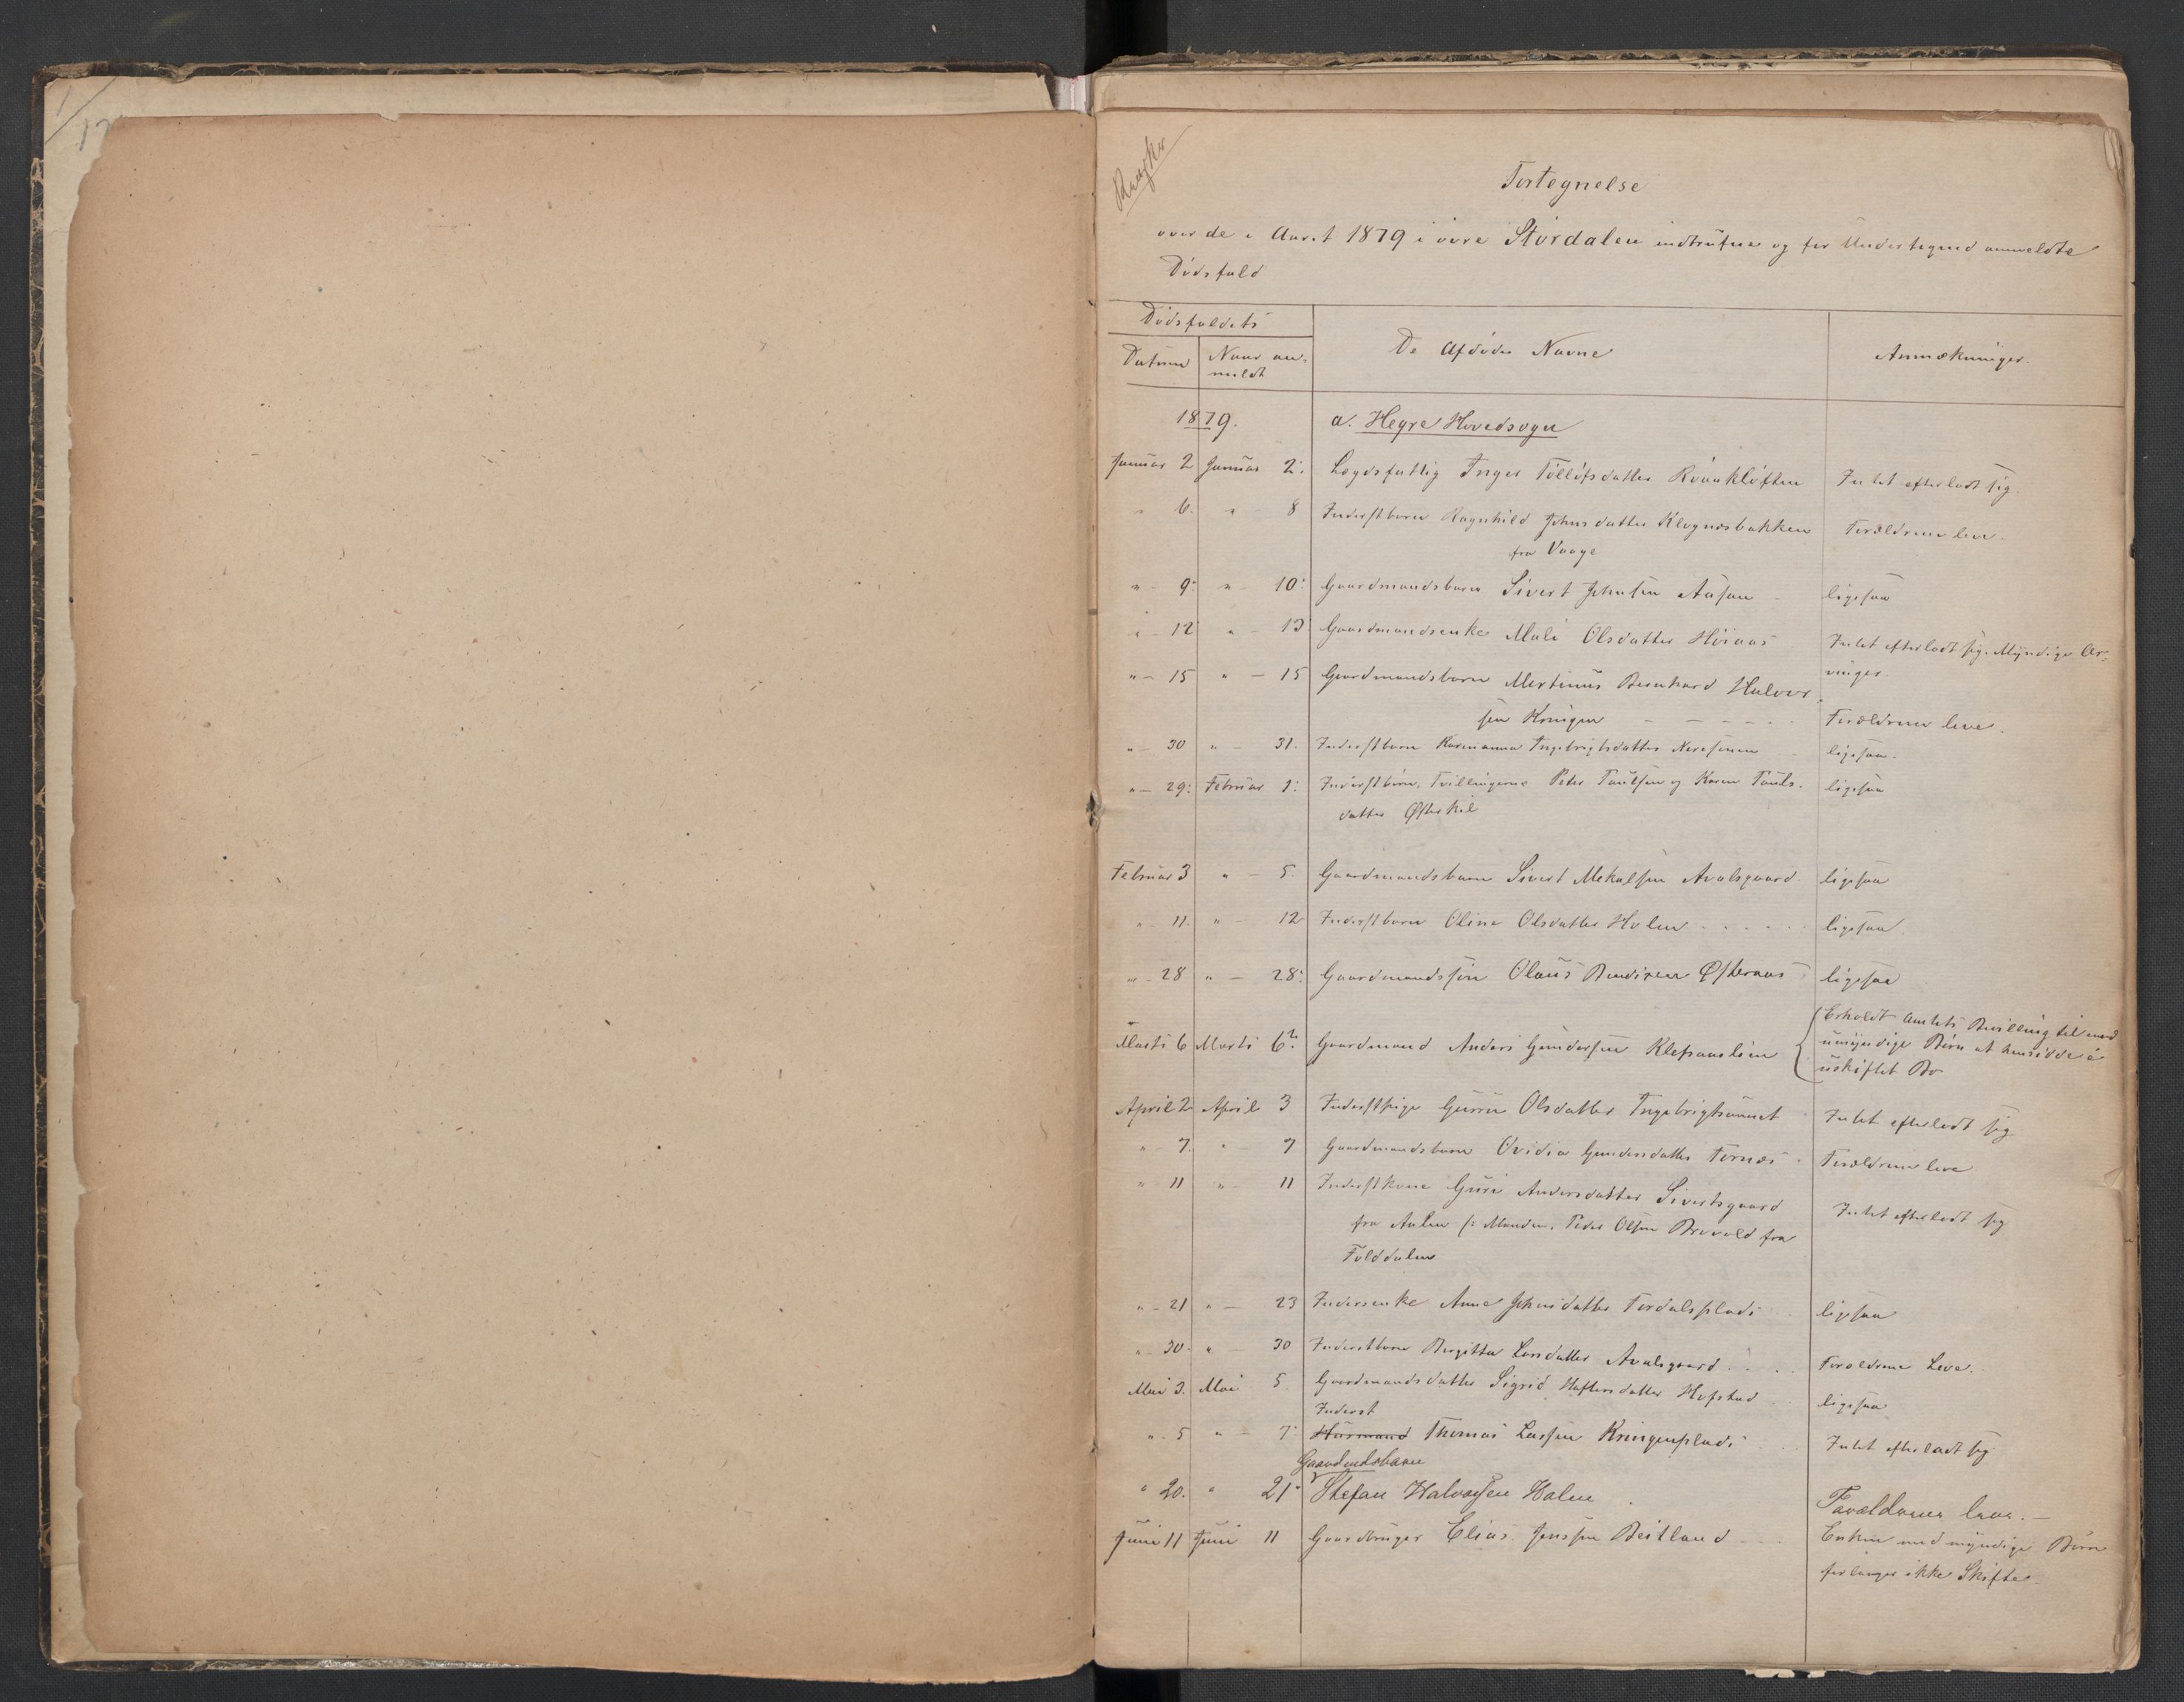 Fortegnelse
over de i Aaret 1879 i øvre Størdalen indtrufne og for Undertegned anmeldte
Dødsfald
Dødsfaldets
Datum
Naar an-
meldt
De Afdødes Navne
Anmærkninger.
1879.
a. Hegre Hovedsogn
Januar 2 Januar 2: Lægdsfattig Inger Tollefsdatter Intet efterlodt sig.
" 6. " 8 Inderstbarn Ragnhild Johnsdatter Klegnæsbakken Forældrene leve.
fra Vaage
" - 9: " - 10: Gaardmandsbarn Sivert Johnsen Aasan ligesaa
" - 12 " - 13 Gaardmandsenke Mali Olsdatter Høiaas Intet efterlodt sig. Myndige Ar-
vinger.
" - 15 " - 15 Gaardmandsbarn Martinus Bernhard Halvor-
sen Kringen - - - - - Forældrene leve.
" - 30 " - 31. Inderstbarn Ingebrigtsdatter ligesaa.
" - 29: Februar 1: Inderstbørn, Tvillingerne Peter Paulsen og Karen Pauls- ligesaa
datter Østerkil
Februar 3 " - 5. Gaardmandsbarn Sivert Mekalsen Avalsgaard. ligesaa
" - 11. " - 12 Inderstbarn Oline Olsdatter Holen . . . . . ligesaa
" - 28 " - 28: Gaardmandssøn Olaus Bendixen Østeraas ligesaa
Marts 6 Marts 6 Gaardmand Anders Gundersen Klefsaaslien
Erholdt Amtets Bevilling til med
umyndige Børn at hensidde i
uskiftet Bo
April 2 April 3 Inderstpige Guru Olsdatter Intet efterlodt sig
" - 7. " - 7 Gaardmandsbarn Ovidia Gundersdatter Fornæs . Forældrene leve
" - 11 " - 11 Inderstkone Guri Andersdatter Sivertsgaard Intet efterlodt sig
fra Aalen (: Manden, Peder Olsen fra
Folddalen
" - 21 " - 23 Inderstenke Anne Johnsdatter Fordalsplads . . ligesaa
" - 30. " - 30 Inderstbarn Birgitta Larsdatter Avalsgaard . . . . Forældrene Leve.
Mai 3. Mai 5. Gaardmandsdatter Sigrid Haftorsdatter Hofstad ligesaa
Inderst
" - 5 " - 7: Husmand Thomas Larsen Kringenplads . . . Intet efterladt sig
Gaardmdsbarn
" 20. " 21: Stefan Halvorsen Holen . Forældrene leve. -
Juni 11 Juni 11 Gaardbruger Elias Jenssen Beitland - - - Enken med myndige Børn
forlanger ikke Skifte.